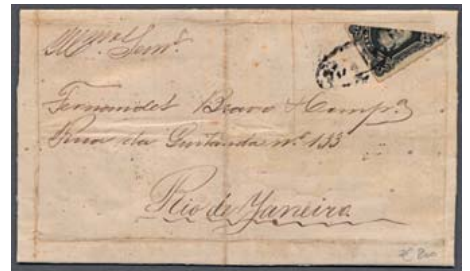 Illmos Senrs
Fernandes Bravo & Compª
Rua da Quitanda nº 133
Rio de Janeiro